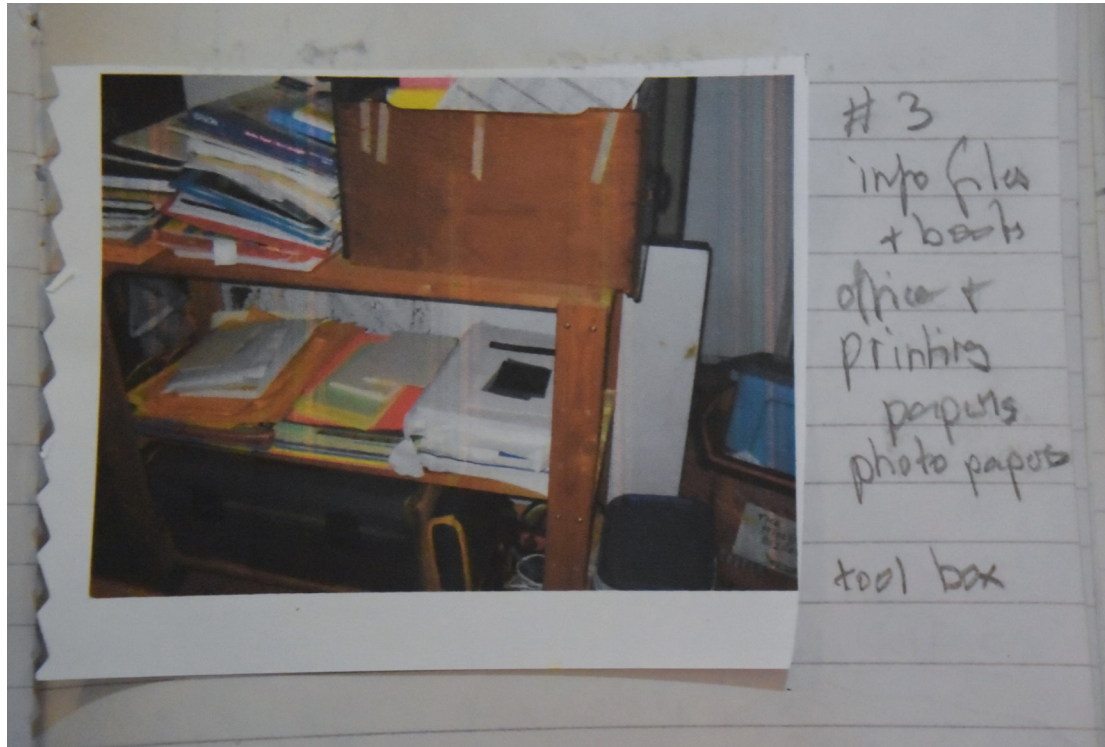 EPSON
# 3
info files
+ books
office +
printing
papers
photo papers
tool box